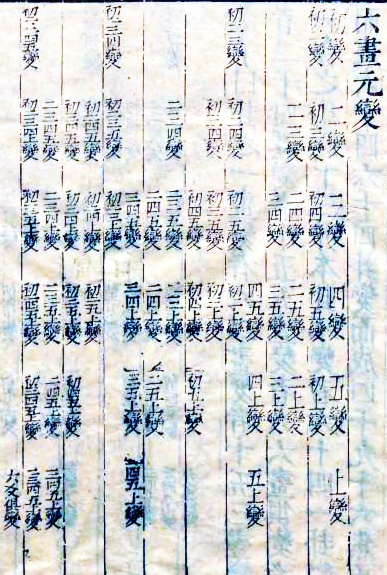 六畫元變
初變 二變 三變 四變 五變 上變
初二變 初三變 初四變 初五變 初上變
二三變 二四變 二五變 二上變
三四變 三五變 三上變
四五變 四上變 五上變
初二三變 初二四變 初二五變 初二上變
初三四變 初三五變 初三上變
初四五變 初四上變 初五上變
二三四變 二三五變 二三上變
二四五變 二四上變 二五上變
三四五變 三四上變 三五上變 四五上變
初二三四變 初二三五變 初二三上變
初二四五變 初二四上變 初二五上變
初三四五變 初三四上變 初三五上變 初四五上變
二三四五變 二三四上變 二三五上變 二四五上變 三四五上變
初二三四五變 初二三四上變 初二三五上變 初二四五上變 初三四五上變 二三四五上變
六爻俱變